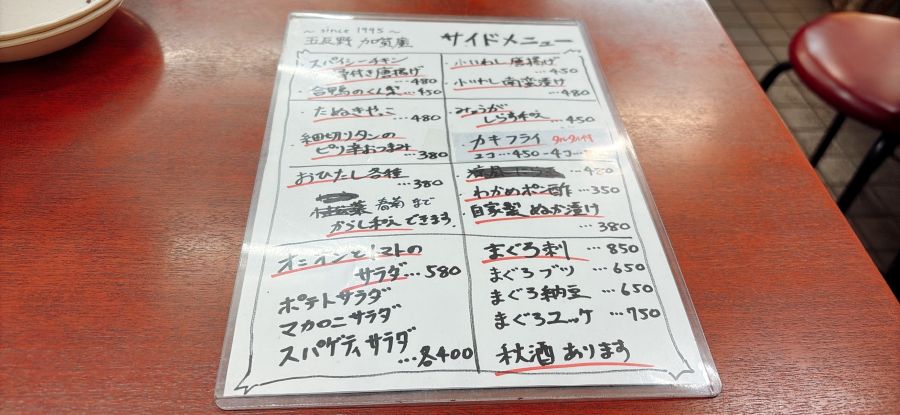 ~ since 1995 ~
五反野 加賀屋
サイドメニュー
・スパイシーチキン
骨付き唐揚げ
…480
・合鴨のくん製 …450
・たぬきやっこ
…480
・細切りタンの
ピリ辛おつまみ
…380
・おひたし各種
…380
春菊 まで
からし和え できます。
オニオンとトマトの
サラダ…580
ポテトサラダ
マカロニサラダ
スパゲティサラダ
…各400
・小いわし唐揚げ
…450
・小いわし南蛮漬け
…480
・みょうが
しらす和え …450
カキフライ タルタル付
2コ…450 - 4コ…
…480
・わかめポン酢 …350
・自家製 ぬか漬け
…380
まぐろ刺 …850
まぐろブツ …650
まぐろ納豆 …650
まぐろユッケ …750
秋酒 あります